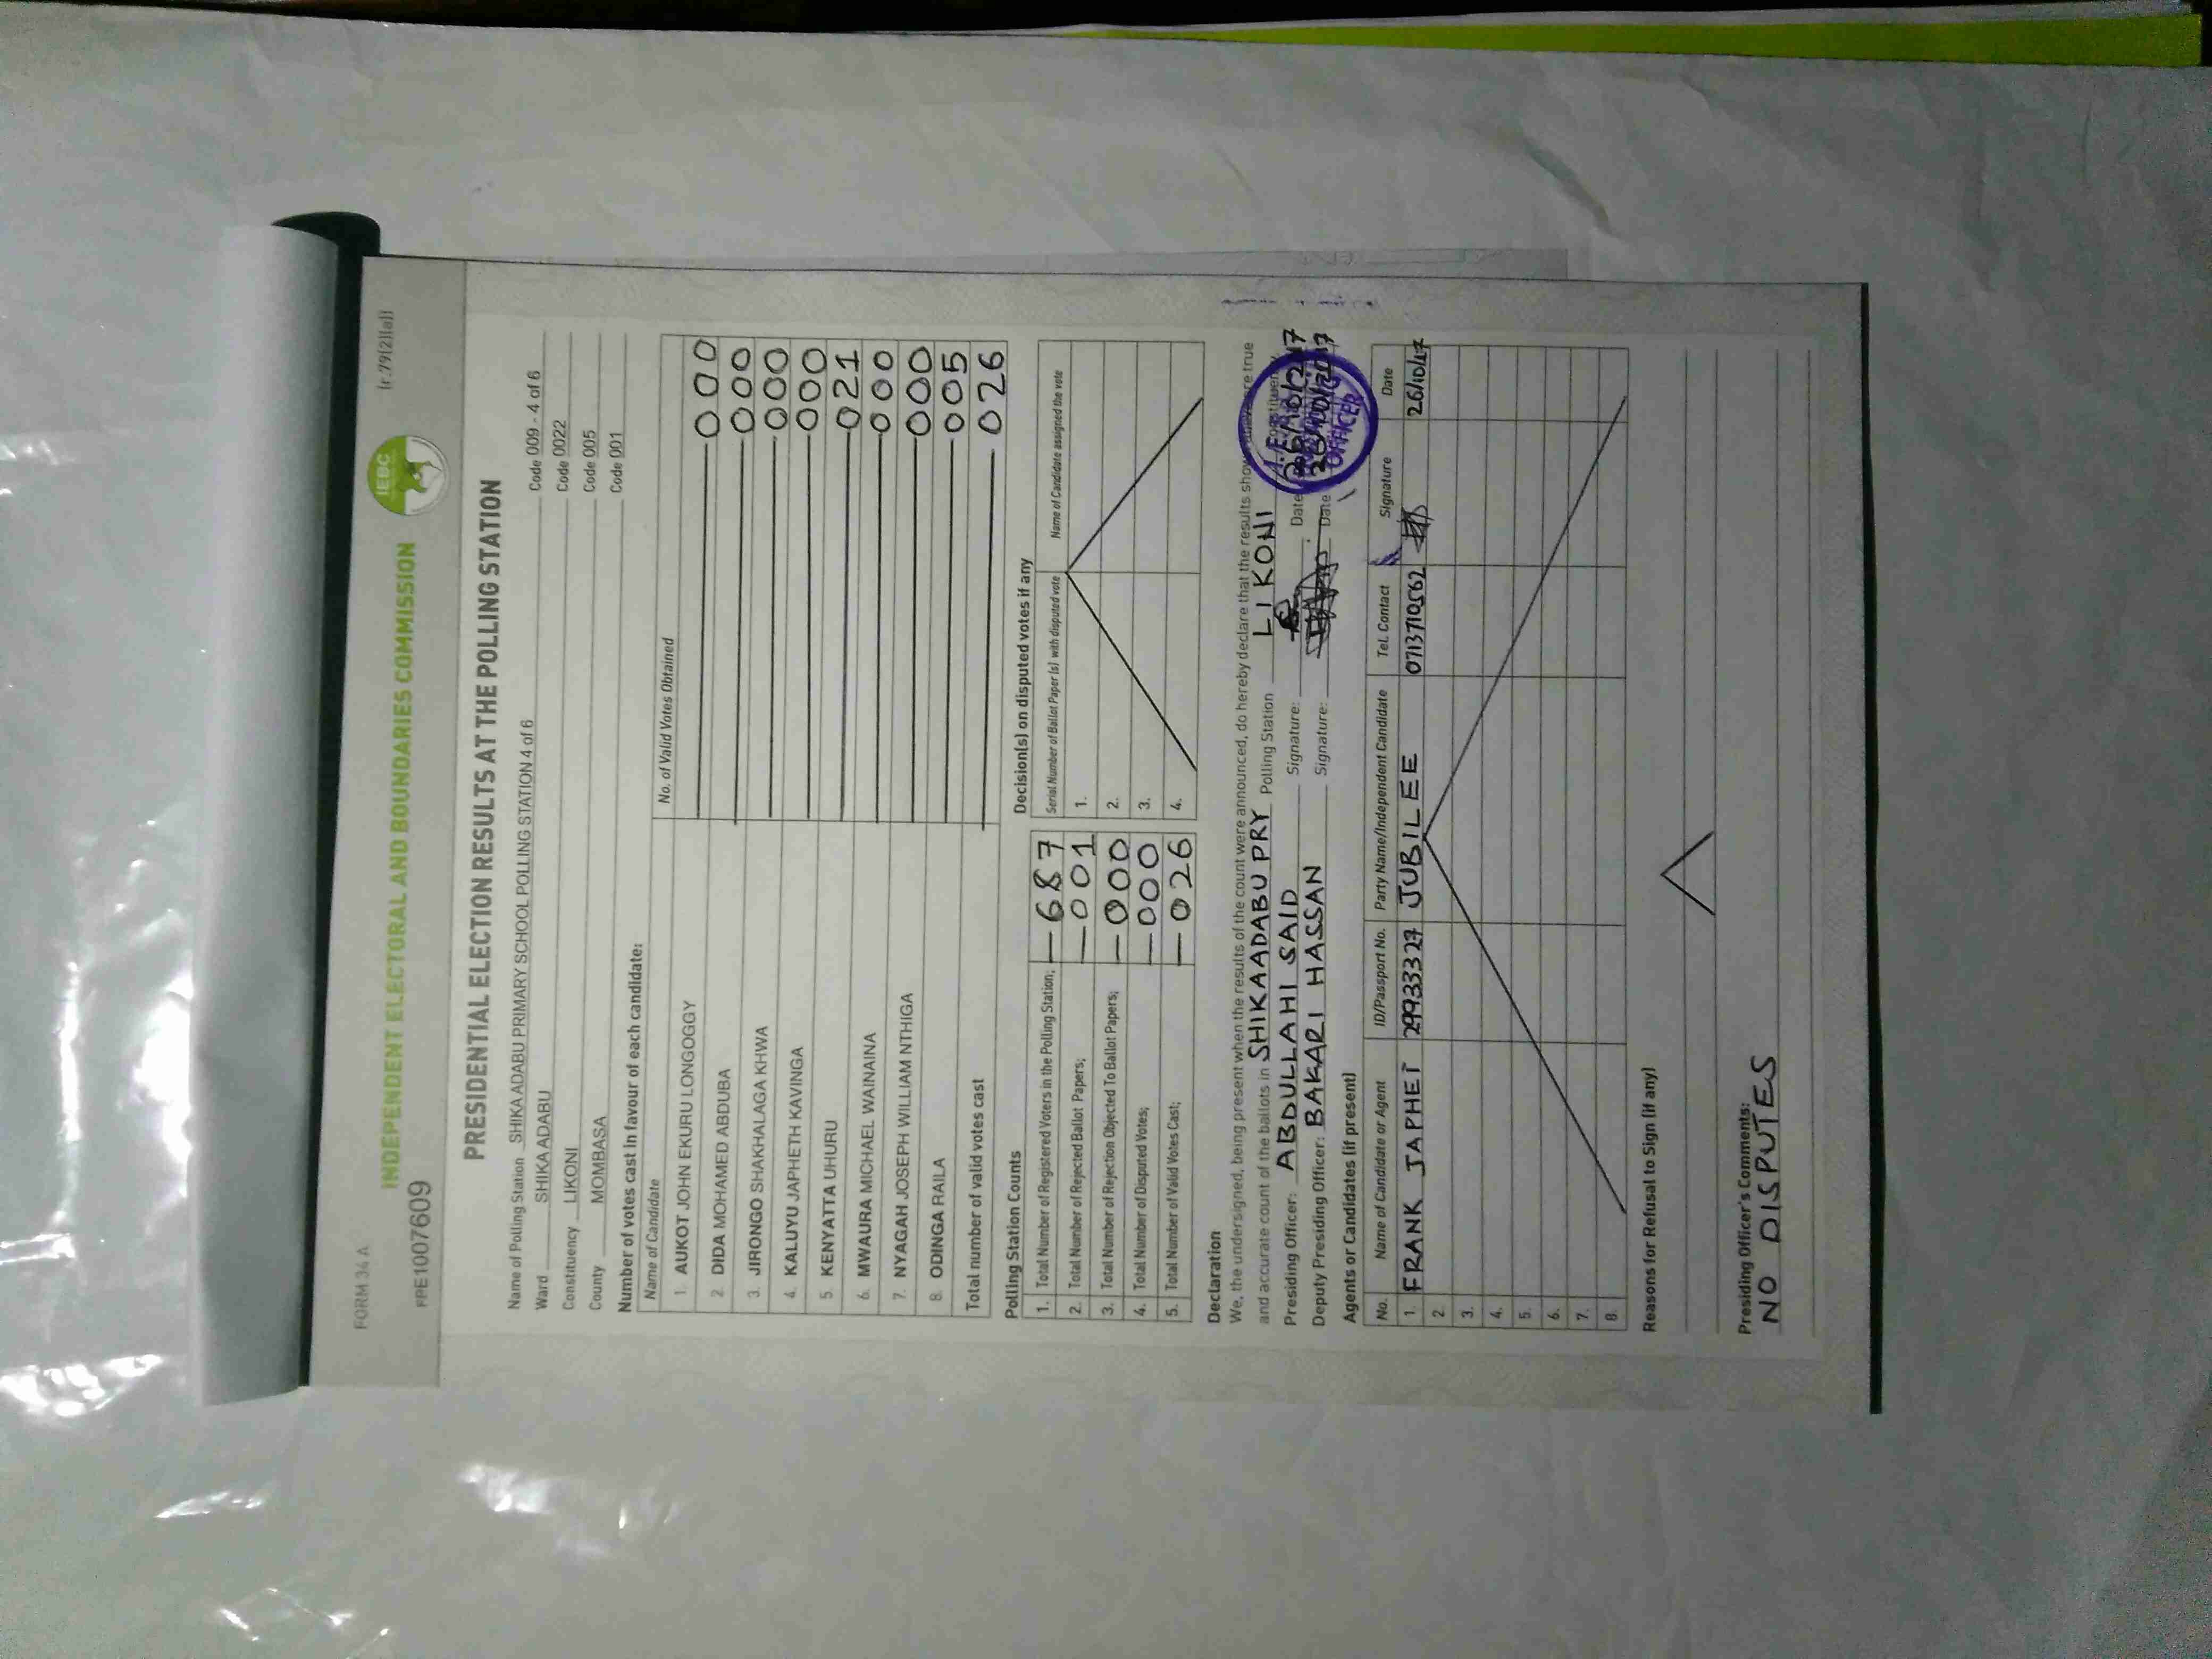 FORM 34 A
(r.79(2)(a))
INDEPENDENT ELECTORAL AND BOUNDARIES COMMISSION
IEBC
FPE1007609
PRESIDENTIAL ELECTION RESULTS AT THE POLLING STATION
Name of Polling Station SHIKA ADABU PRIMARY SCHOOL POLLING STATION 4 of 6 Code 009 - 4 of 6
Ward SHIKA ADABU Code 0022
Constituency LIKONI Code 005
County MOMBASA Code 001
Number of votes cast in favour of each candidate:
Name of Candidate No. of Valid Votes Obtained
1. AUKOT JOHN EKURU LONGOGGY 000
2. DIDA MOHAMED ABDUBA 000
3. JIRONGO SHAKHALAGA KHWA 000
4. KALUYU JAPHETH KAVINGA 000
5. KENYATTA UHURU 021
6. MWAURA MICHAEL WAINAINA 000
7. NYAGAH JOSEPH WILLIAM NTHIGA 000
8. ODINGA RAILA 005
Total number of valid votes cast 026
Polling Station Counts
1. Total Number of Registered Voters in the Polling Station; 687
2. Total Number of Rejected Ballot Papers; 001
3. Total Number of Rejection Objected To Ballot Papers; 000
4. Total Number of Disputed Votes; 000
5. Total Number of Valid Votes Cast; 026
Decision(s) on disputed votes if any
Serial Number of Ballot Paper (s) with disputed vote Name of Candidate assigned the vote
1.
2.
3.
4.
Declaration
We, the undersigned, being present when the results of the count were announced, do hereby declare that the results shown above are true
and accurate count of the ballots in SHIKAADABU PRY Polling Station LIKONI Constituency
Presiding Officer: ABDULLAHI SAID Signature: Date 26/10/2017
Deputy Presiding Officer: BAKARI HASSAN Signature: Date 26/10/2017
OFFICER
Agents or Candidates (if present)
No. Name of Candidate or Agent ID/Passport No. Party Name/Independent Candidate Tel. Contact Signature Date
1. FRANK JAPHET 29933327 JUBILEE 0713710562 26/10/17
2.
3.
4.
5.
6.
7.
8.
Reasons for Refusal to Sign (if any)
Presiding Officer's Comments:
NO DISPUTES